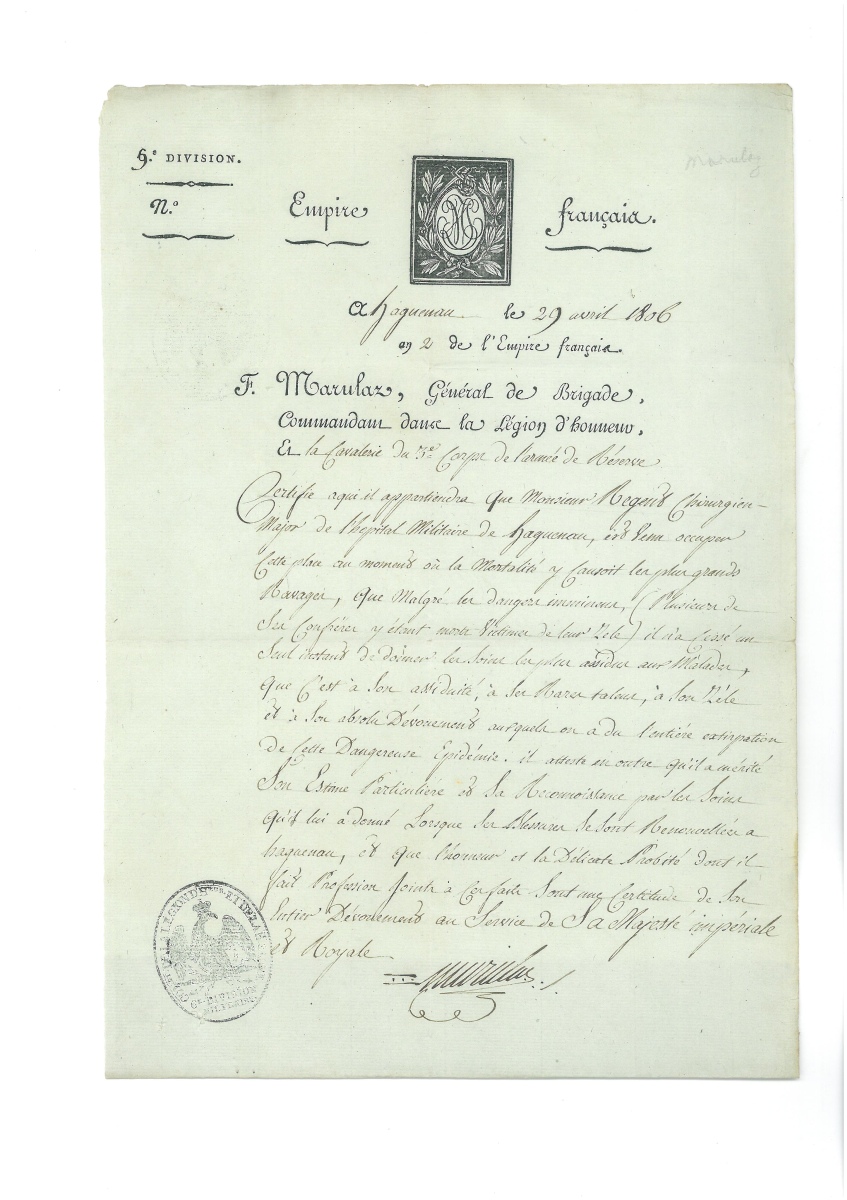 9.e DIVISION.
Marulaz
N.o
Empire français.
A haguenau le 29 avril 1806
an 2 de l'Empire français.
F. Marulaz, Général de Brigade,
Commandant dans la Légion d'honneur,
Et la Cavalerie du 3e Corps de l'armée de Réserve
Certifie aqui il appartiendra que Monsieur Regent Chirurgien-
Major de l'hopital Militaire de haguenau, est venu occuper
Cette place au moment où la Mortalité y Causoit les plus grands
Ravages, que Malgré les dangers imminens, (Plusieurs de
Ses Confrères y étant morts Victimes de leur Zele) il n'a Cessé un
Seul instant de donner les Soins les plus assidus aux Malades,
que C'est à Son assiduité, à Ses Rares talens, à Son Zéle
et à Son absolu Dévouement auxquels on a du l'entière extirpation
de Cette Dangereuse Epidémie. il atteste en outre qu'il a mérité
Son Estime Particulière et Sa Reconnoissance par les Soins
qu'il lui a donné Lorsque Ses Blessures Se Sont Renouvellées a
haguenau, et que l'honneur et la Délicate Probité dont il
fait Profession Joints à Ces faits Sont une Certitude de Son
Entier Dévouement au Service de Sa Majesté impériale
et Royale
Marulaz
LEGION D'
6e DIVISION
MILITAIRE